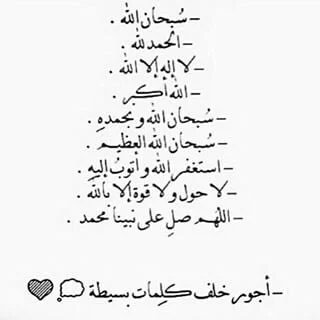 –سُبحان الله .
–الحمدلله .
–لا إله إلا الله .
–الله أكبر .
–سُبحان الله وبحمدهِ .
–سُبحان الله العظيم .
–استغفر الله وأتوبُ إليهِ .
–لا حول ولا قوة إلا بالله .
–اللهُم صلِ على نبينا محمد .
–أجور خلف كلِمات بسيطة 💭🖤